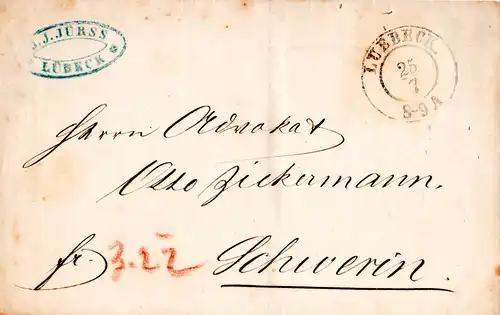 J.J.JÜRSS
LÜBECK
LUEBECK.
25
7
8-9 A
Herrn Advokat
Otto Zickermann.
fr. 3.22 Schwerin.